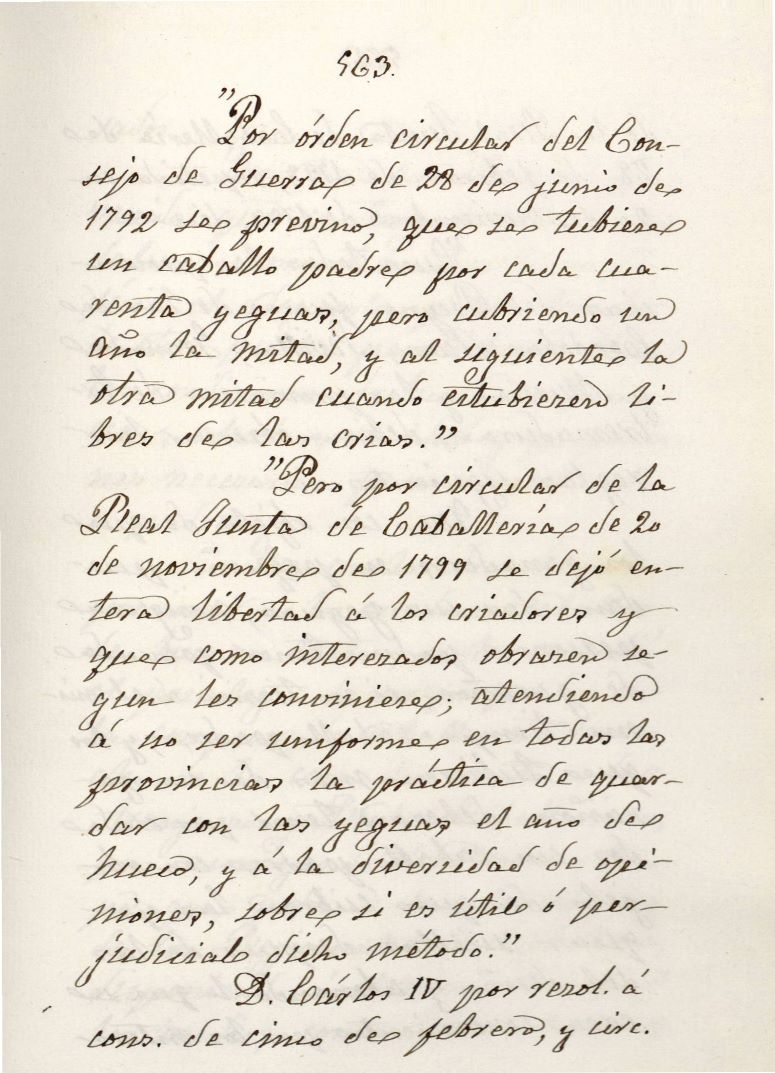 563.
"Por órden circular del Con-
sejo de Guerra de 28 de junio de
1792 se previno, que se tubiese
un caballo padre por cada cua-
renta yeguas, pero cubriendo un
año la mitad, y al siguiente la
otra mitad cuando estubiesen li-
bres de las crias."
"Pero por circular de la
Real Junta de Caballería de 20
de noviembre de 1799 se dejó en-
tera libertad á los criadores y
que como interezados obrasen se-
gun les conviniese; atendiendo
á no ser uniforme en todas las
provincias la práctica de guar-
dar con las yeguas el año de
hueco, y á la diversidad de opi-
niones, sobre si es útil ó per-
judicial dicho método."
D. Cárlos IV por resol. á
cons. de cinco de febrero, y circ.